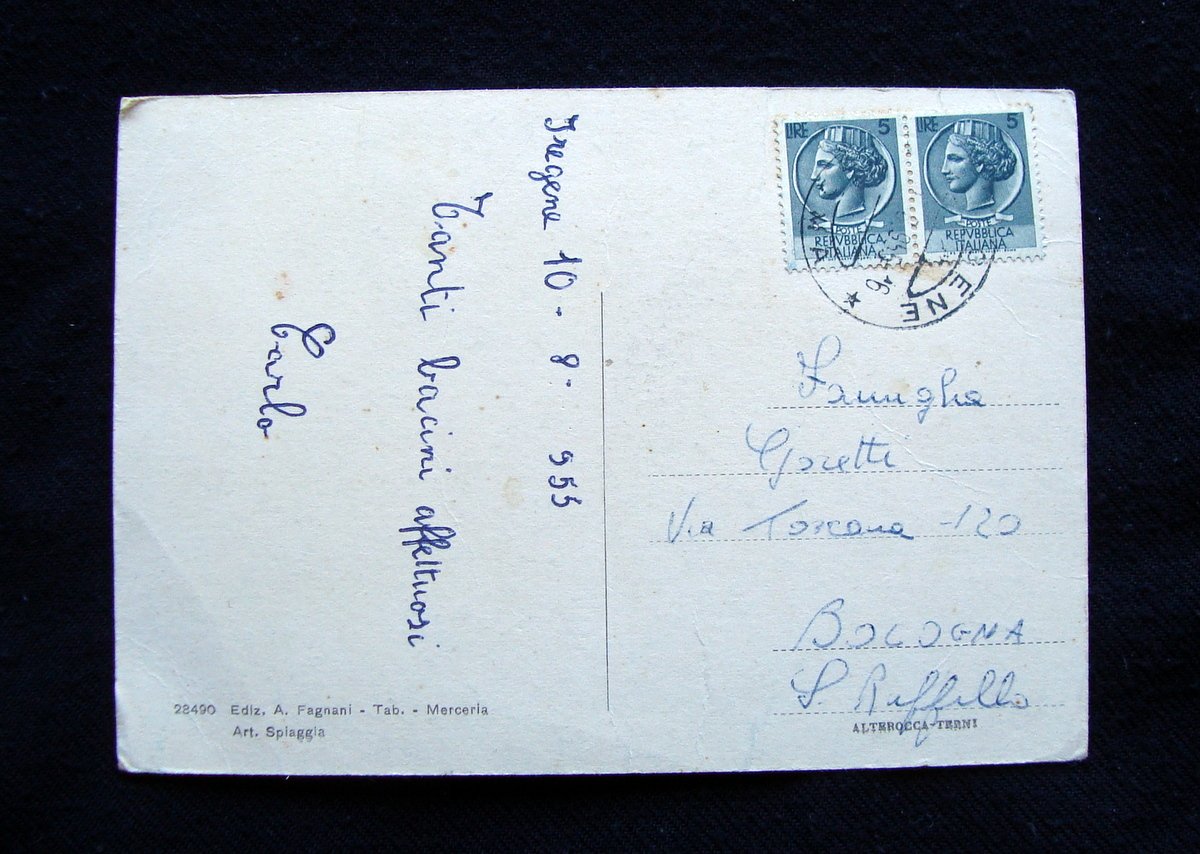 Fregene 10-8-955
Tanti bacini affettuosi
Carlo
28490 Ediz. A. Fagnani - Tab. - Merceria
Art. Spiaggia
LIRE 5
POSTE
REPVBBLICA
ITALIANA
LIRE 5
POSTE
REPVBBLICA
ITALIANA
ENE
Famiglia
Goretti
Via Toscana - 120
BOLOGNA
S. Ruffillo
ALTEROCCA-TERNI